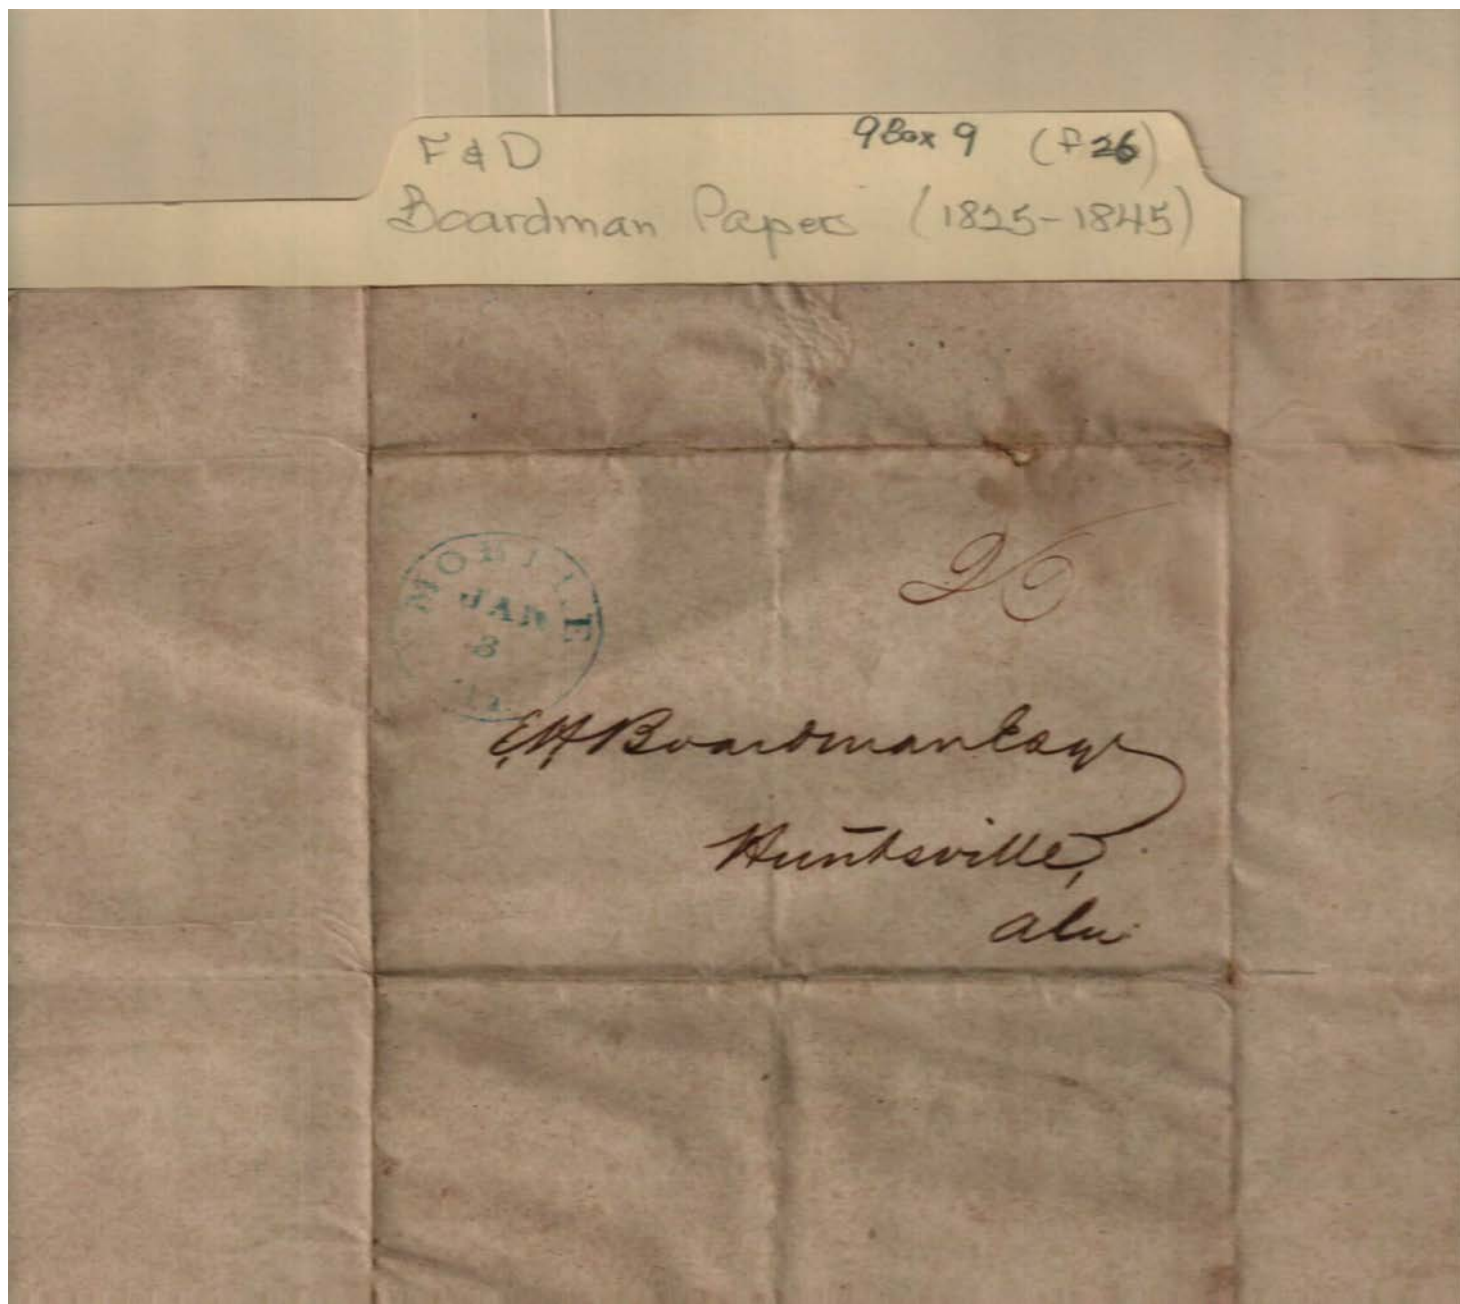 F & D 9Box 9 (f 26)
Boardman Papers (1825-1845)
MOBILE
JAN
8
E H Boardman Esqr
Huntsville,
Ala